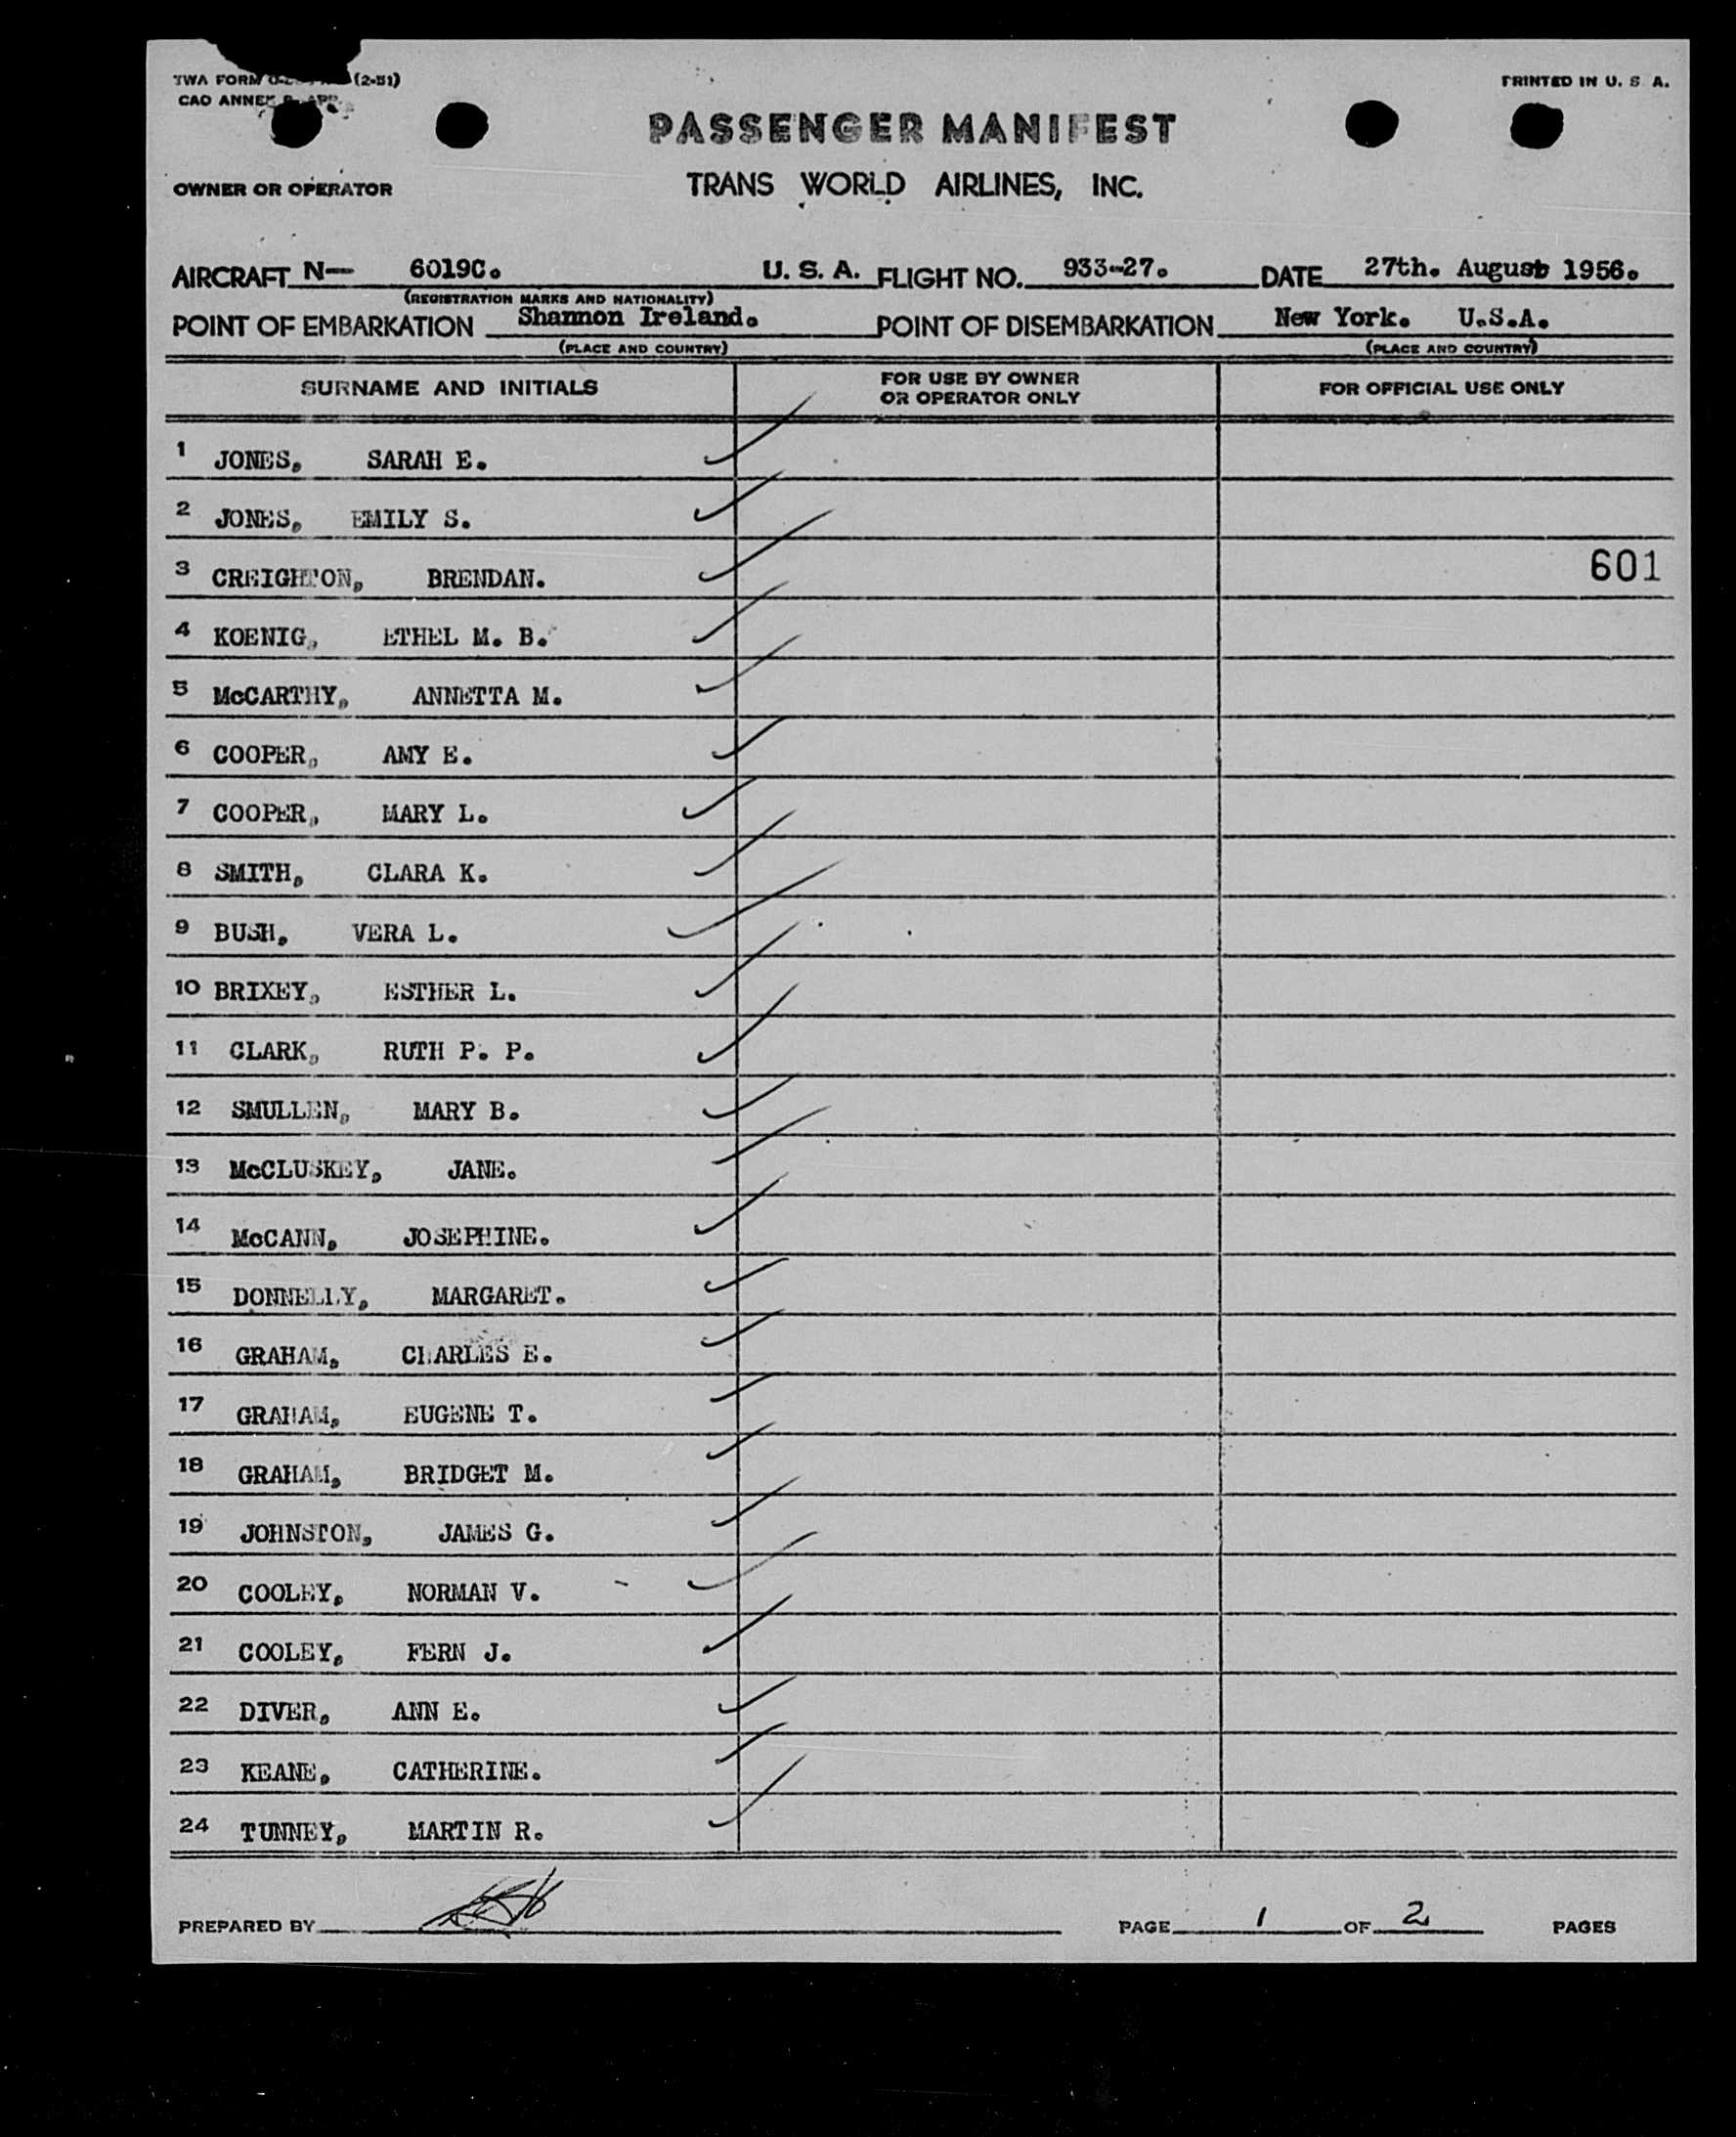 TWA FORM (2-51)
PRINTED IN U. S. A.
CAO ANNEX
PASSENGER MANIFEST
OWNER OR OPERATOR
TRANS WORLD AIRLINES, INC.
AIRCRAFT N— 6019C. U. S. A. FLIGHT NO. 933-27. DATE 27th. August 1956.
(REGISTRATION MARKS AND NATIONALITY)
POINT OF EMBARKATION Shannon Ireland. POINT OF DISEMBARKATION New York. U.S.A.
(PLACE AND COUNTRY) (PLACE AND COUNTRY)
SURNAME AND INITIALS
FOR USE BY OWNER
OR OPERATOR ONLY
FOR OFFICIAL USE ONLY
1 JONES, SARAH E.
2 JONES, EMILY S.
3 CREIGHTON, BRENDAN. 601
4 KOENIG, ETHEL M. B.
5 McCARTHY, ANNETTA M.
6 COOPER, AMY E.
7 COOPER, MARY L.
8 SMITH, CLARA K.
9 BUSH, VERA L.
10 BRIXEY, ESTHER L.
11 CLARK, RUTH P. P.
12 SMULLEN, MARY B.
13 McCLUSKEY, JANE.
14 McCANN, JOSEPHINE.
15 DONNELLY, MARGARET.
16 GRAHAM, CHARLES E.
17 GRAHAM, EUGENE T.
18 GRAHAM, BRIDGET M.
19 JOHNSTON, JAMES G.
20 COOLEY, NORMAN V.
21 COOLEY, FERN J.
22 DIVER, ANN E.
23 KEANE, CATHERINE.
24 TUNNEY, MARTIN R.
PREPARED BY PAGE 1 OF 2 PAGES